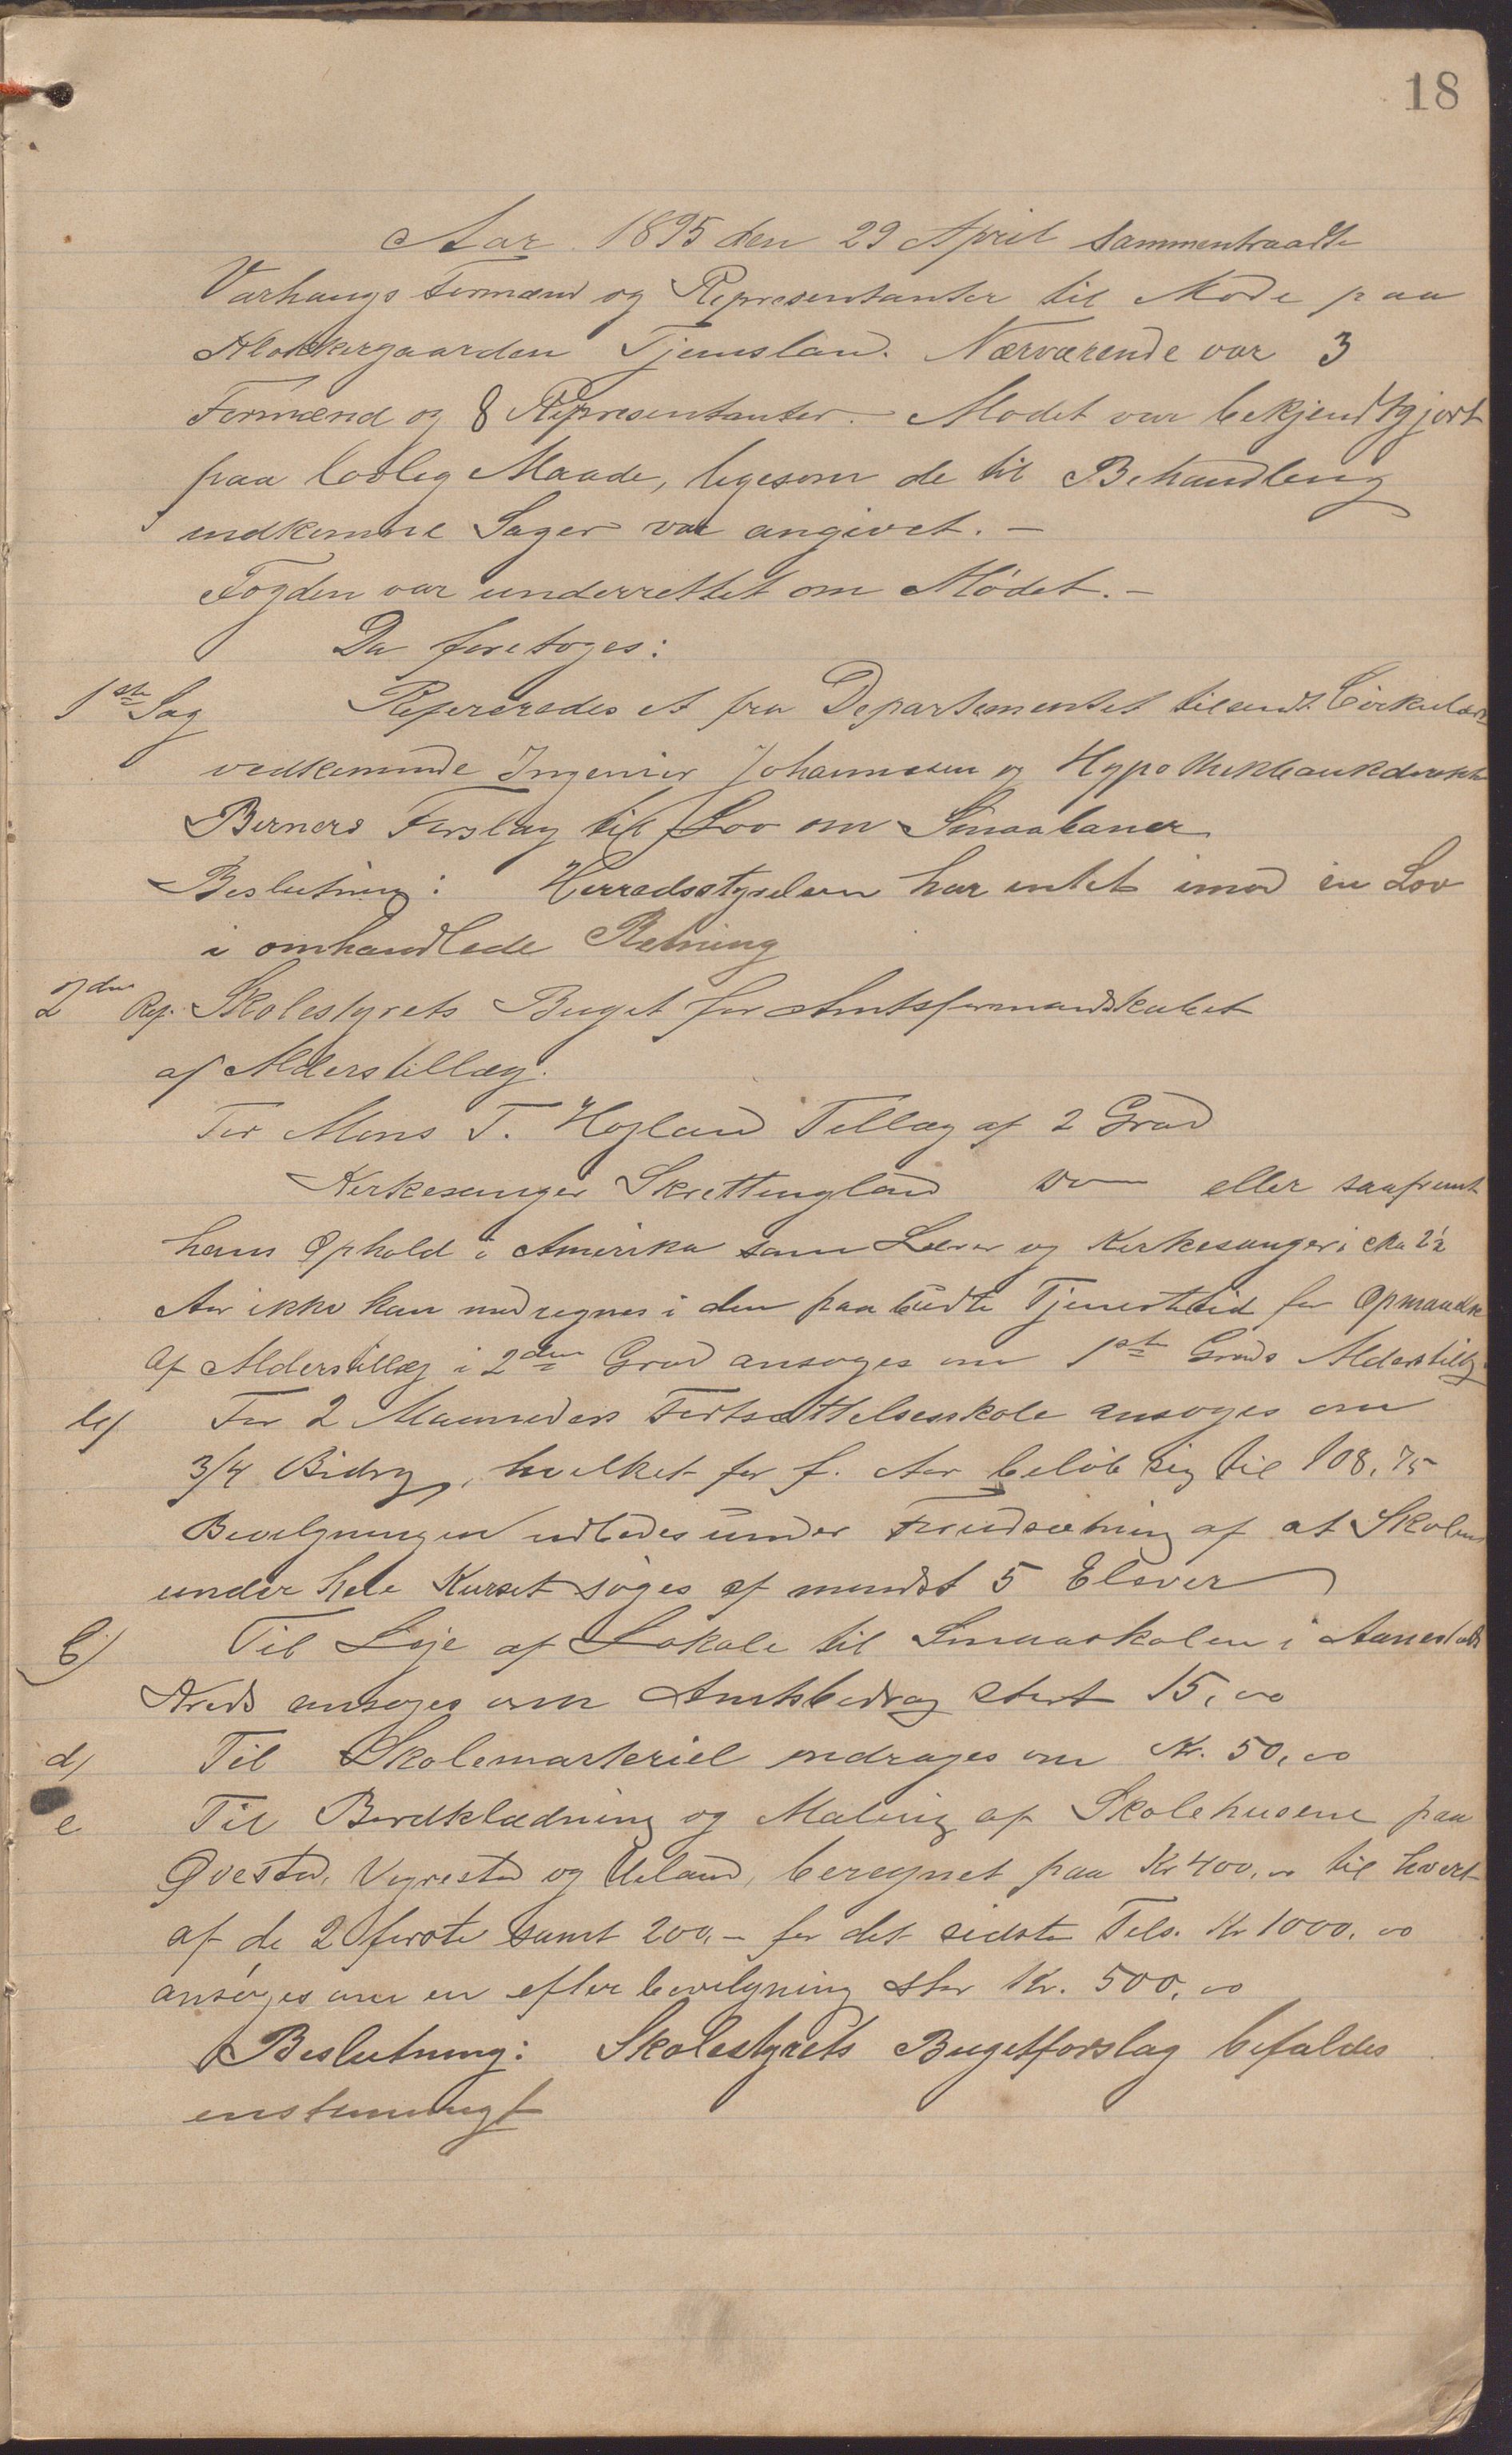 18
Aar 1895 den 29 April sammentraadte
Varhaugs Formænd og Repræsentanter til Møde paa
Klokkergaarden Tjemsland. Nærværende var 3
Formænd og 8 Repræsentanter. – Mødet var bekjendtgjort
paa lovlig Maade, ligesom de til Behandling
indkomne Sager var angivet. –
Fogden var underrettet om Mødet. –
Da foretoges:
1ste Sag Refereredes et fra Departementet tilsendt Cirkulære
vedkommende Ingeniør Johannesen og Hypothekbankdirektør
Berners Forslag til Lov om Smaabaner
Beslutning: Herredsstyrelsen har intet imod en Lov
i omhandlede Retning
2den Ref. Skolestyrets Buget for Amtsformandskabet
af Alderstillæg.
For Mons T. Hogland Tillæg af 2 Grad
Kirkesanger Skrettingland Do eller saafremt
hans Ophold i Amerika som Lærer og Kirkesanger i cka 2½
Aar ikke kan medregnes i den paabudte Tjenestetid for
af Alderstillæg i 2den Grad ansøges om 1ste Grads Alderstillæg
b) For 2 Maaneders Fortsættelsesskole ansøges om
3/4 Bidrag, hvilket for f. Aar beløb sig til 108,75
Bevilgningen udbedes under Forudsætning af at Skolen
under hele Kurset søges af mindst 5 Elever
c) Til Leje af Lokale til Smaaskolen i Aanestads
Kreds ansøges om Amtsbidrag stort 15,00
d) Til Skolemarteriel andrages om Kr. 50,00
e Til Bordklædning og Maling af Skolehusene paa
Ødested, Vigrestad og Ueland, beregnet paa Kr 400,00 til hvert
af de 2 første samt 200,– for det sidste Tils. Kr 1000,00
ansøges om en efter bevilgning stor Kr. 500,00
Beslutning: Skolestyrets Bugetforslag bifaldes
enstemmigt